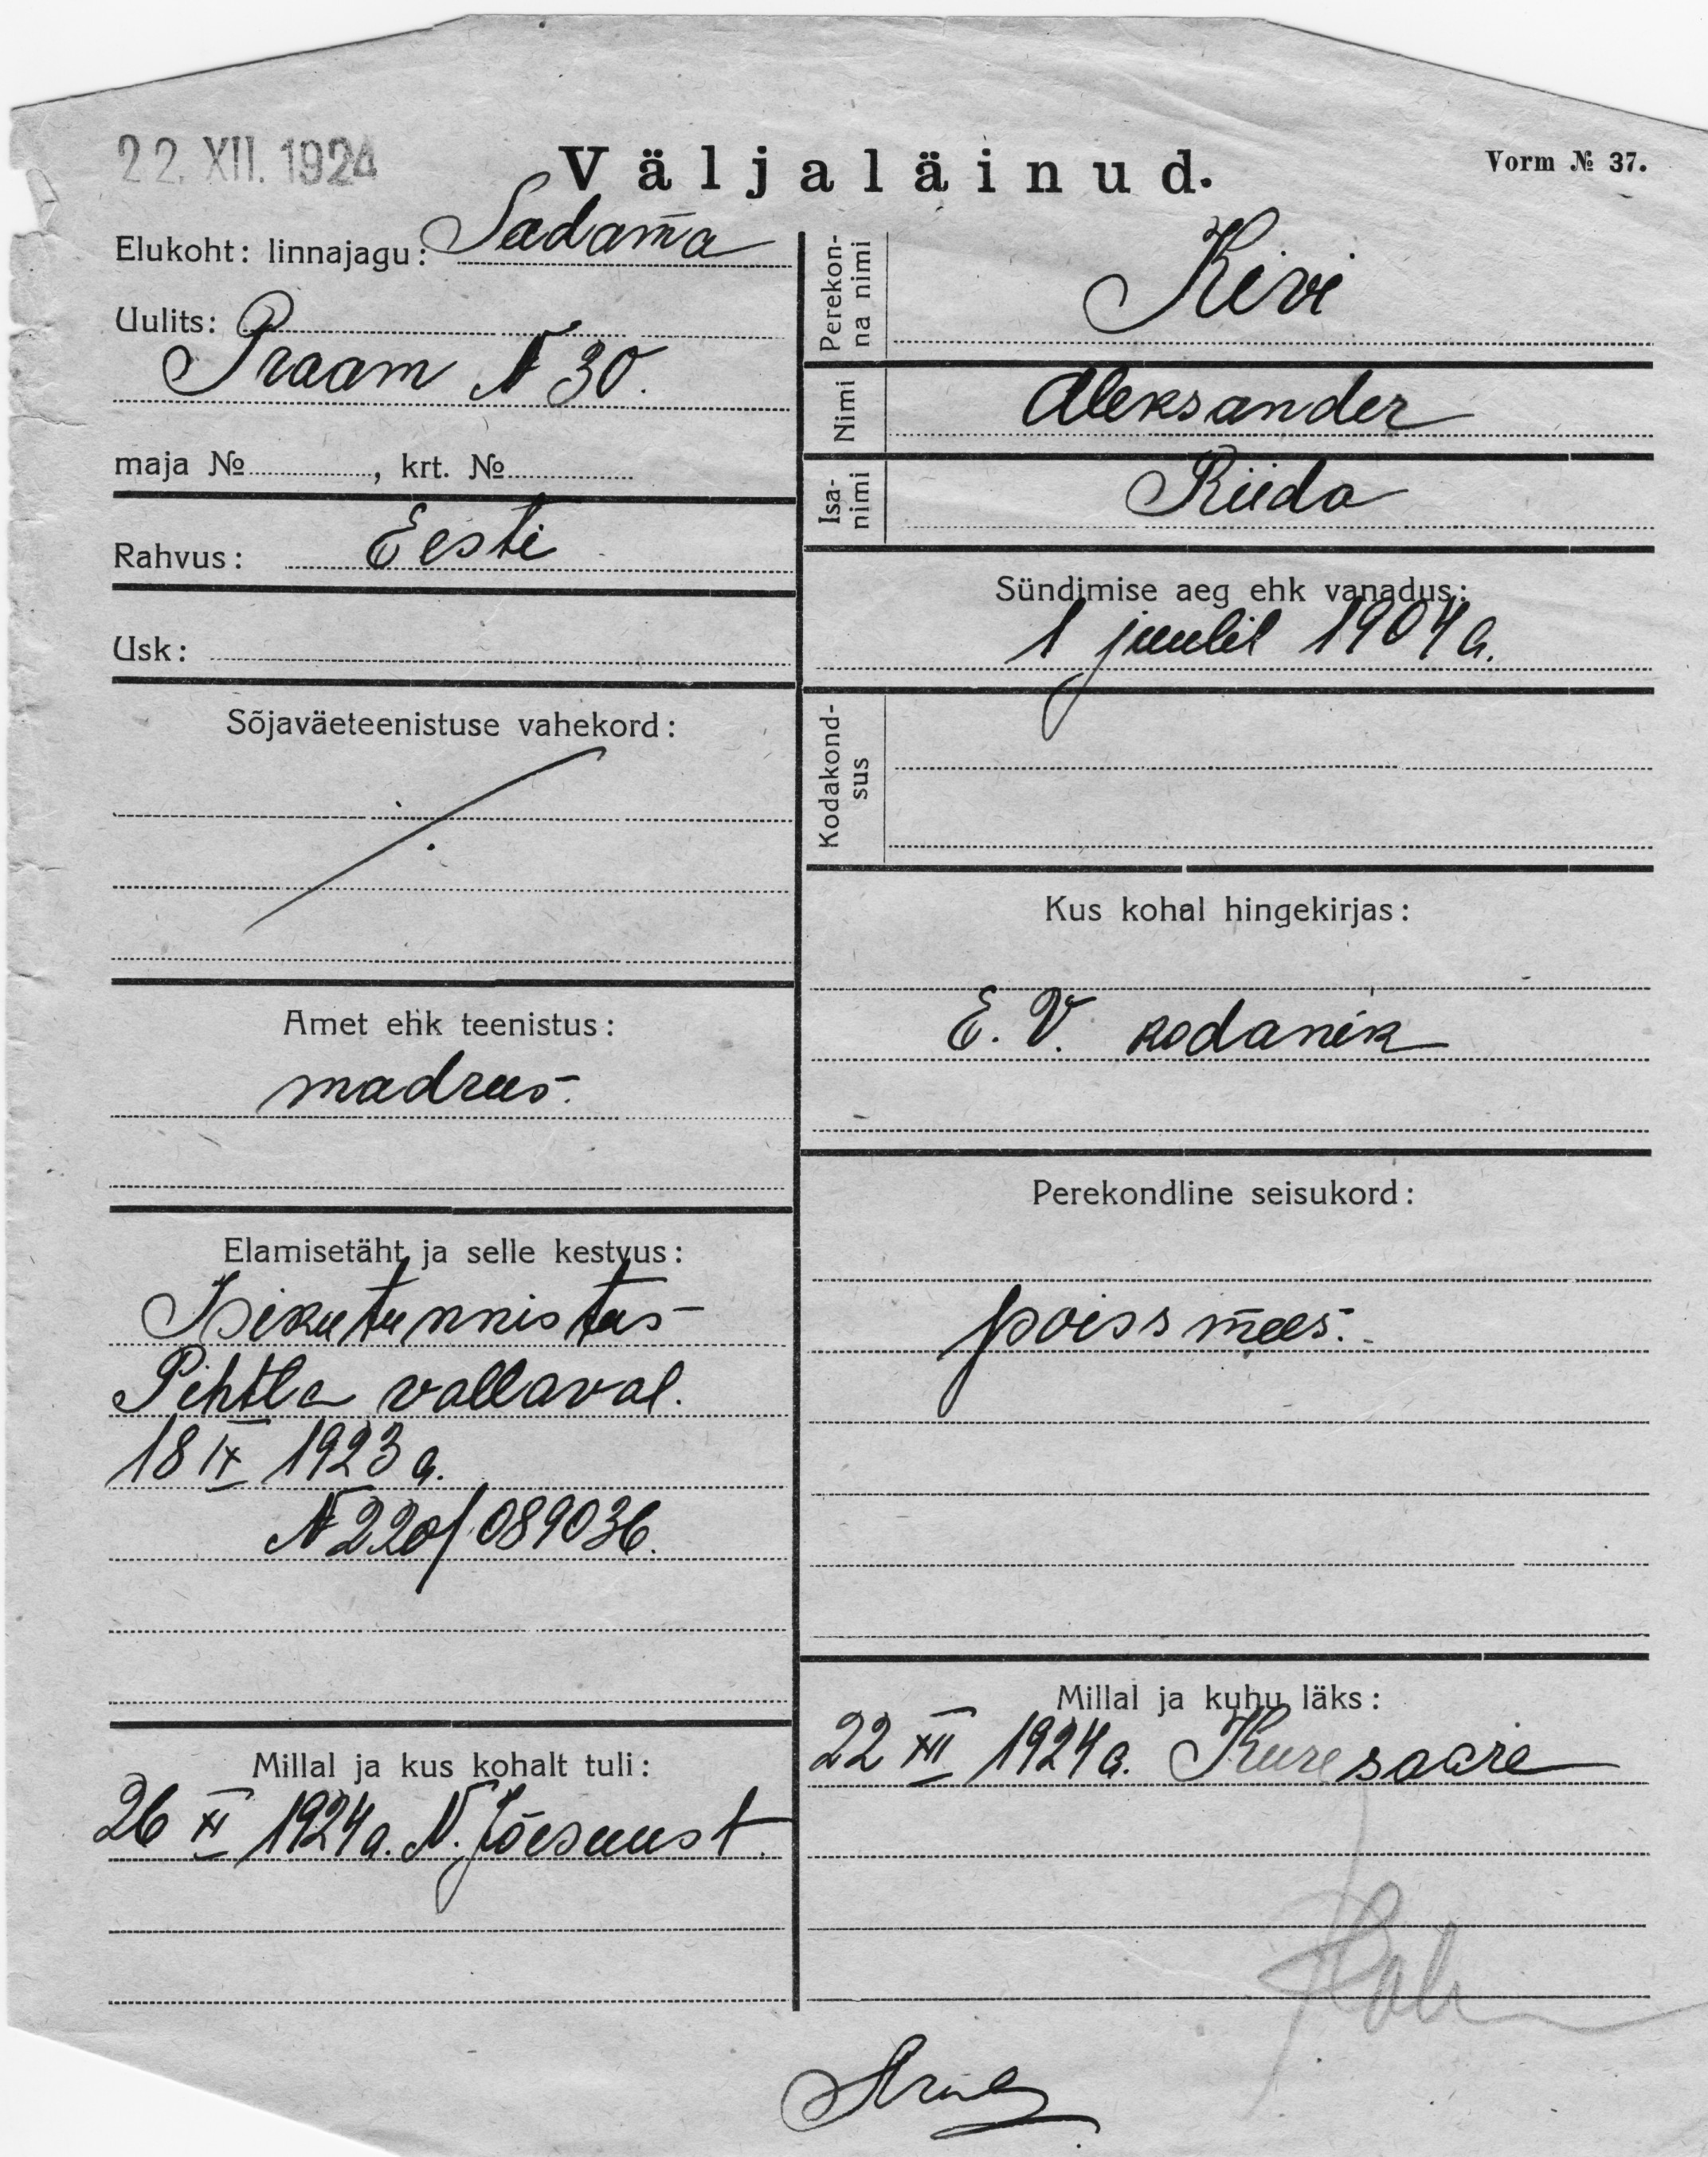 22. XII. 1924
Väljaläinud.
Vorm № 37.
Elukoht: linnajagu: Sadama
Uulits:
Praam N 30.
maja № , krt. №
Rahvus: Eesti
Usk:
Sõjaväeteenistuse vahekord:
Amet ehk teenistus:
madrus.
Elamisetäht ja selle kestvus:
Isikutunnistus
Pihtla vallaval.
18 IX 1923 a.
N 220/089036.
Millal ja kus kohalt tuli:
26 XI 1924 a. N. Jõesuust.
Perekon-
na nimi
Kivi
Nimi
Aleksander
Isa-
nimi
Riido
Sündimise aeg ehk vanadus:
1 juulil 1904 a.
Kodakond-
sus
Kus kohal hingekirjas:
E. V. kodanik
Perekondline seisukord:
poissmees.
Millal ja kuhu läks:
22 XII 1924 a. Kuresaare